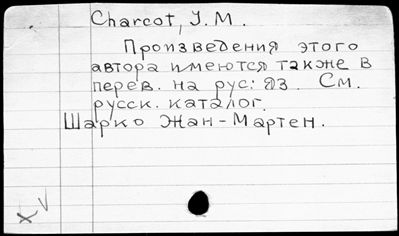 Charcot, J. M.
Произведения этого
автора имеются также в
перев. на рус. яз. См.
русск. каталог.
Шарко Жан-Мартен.